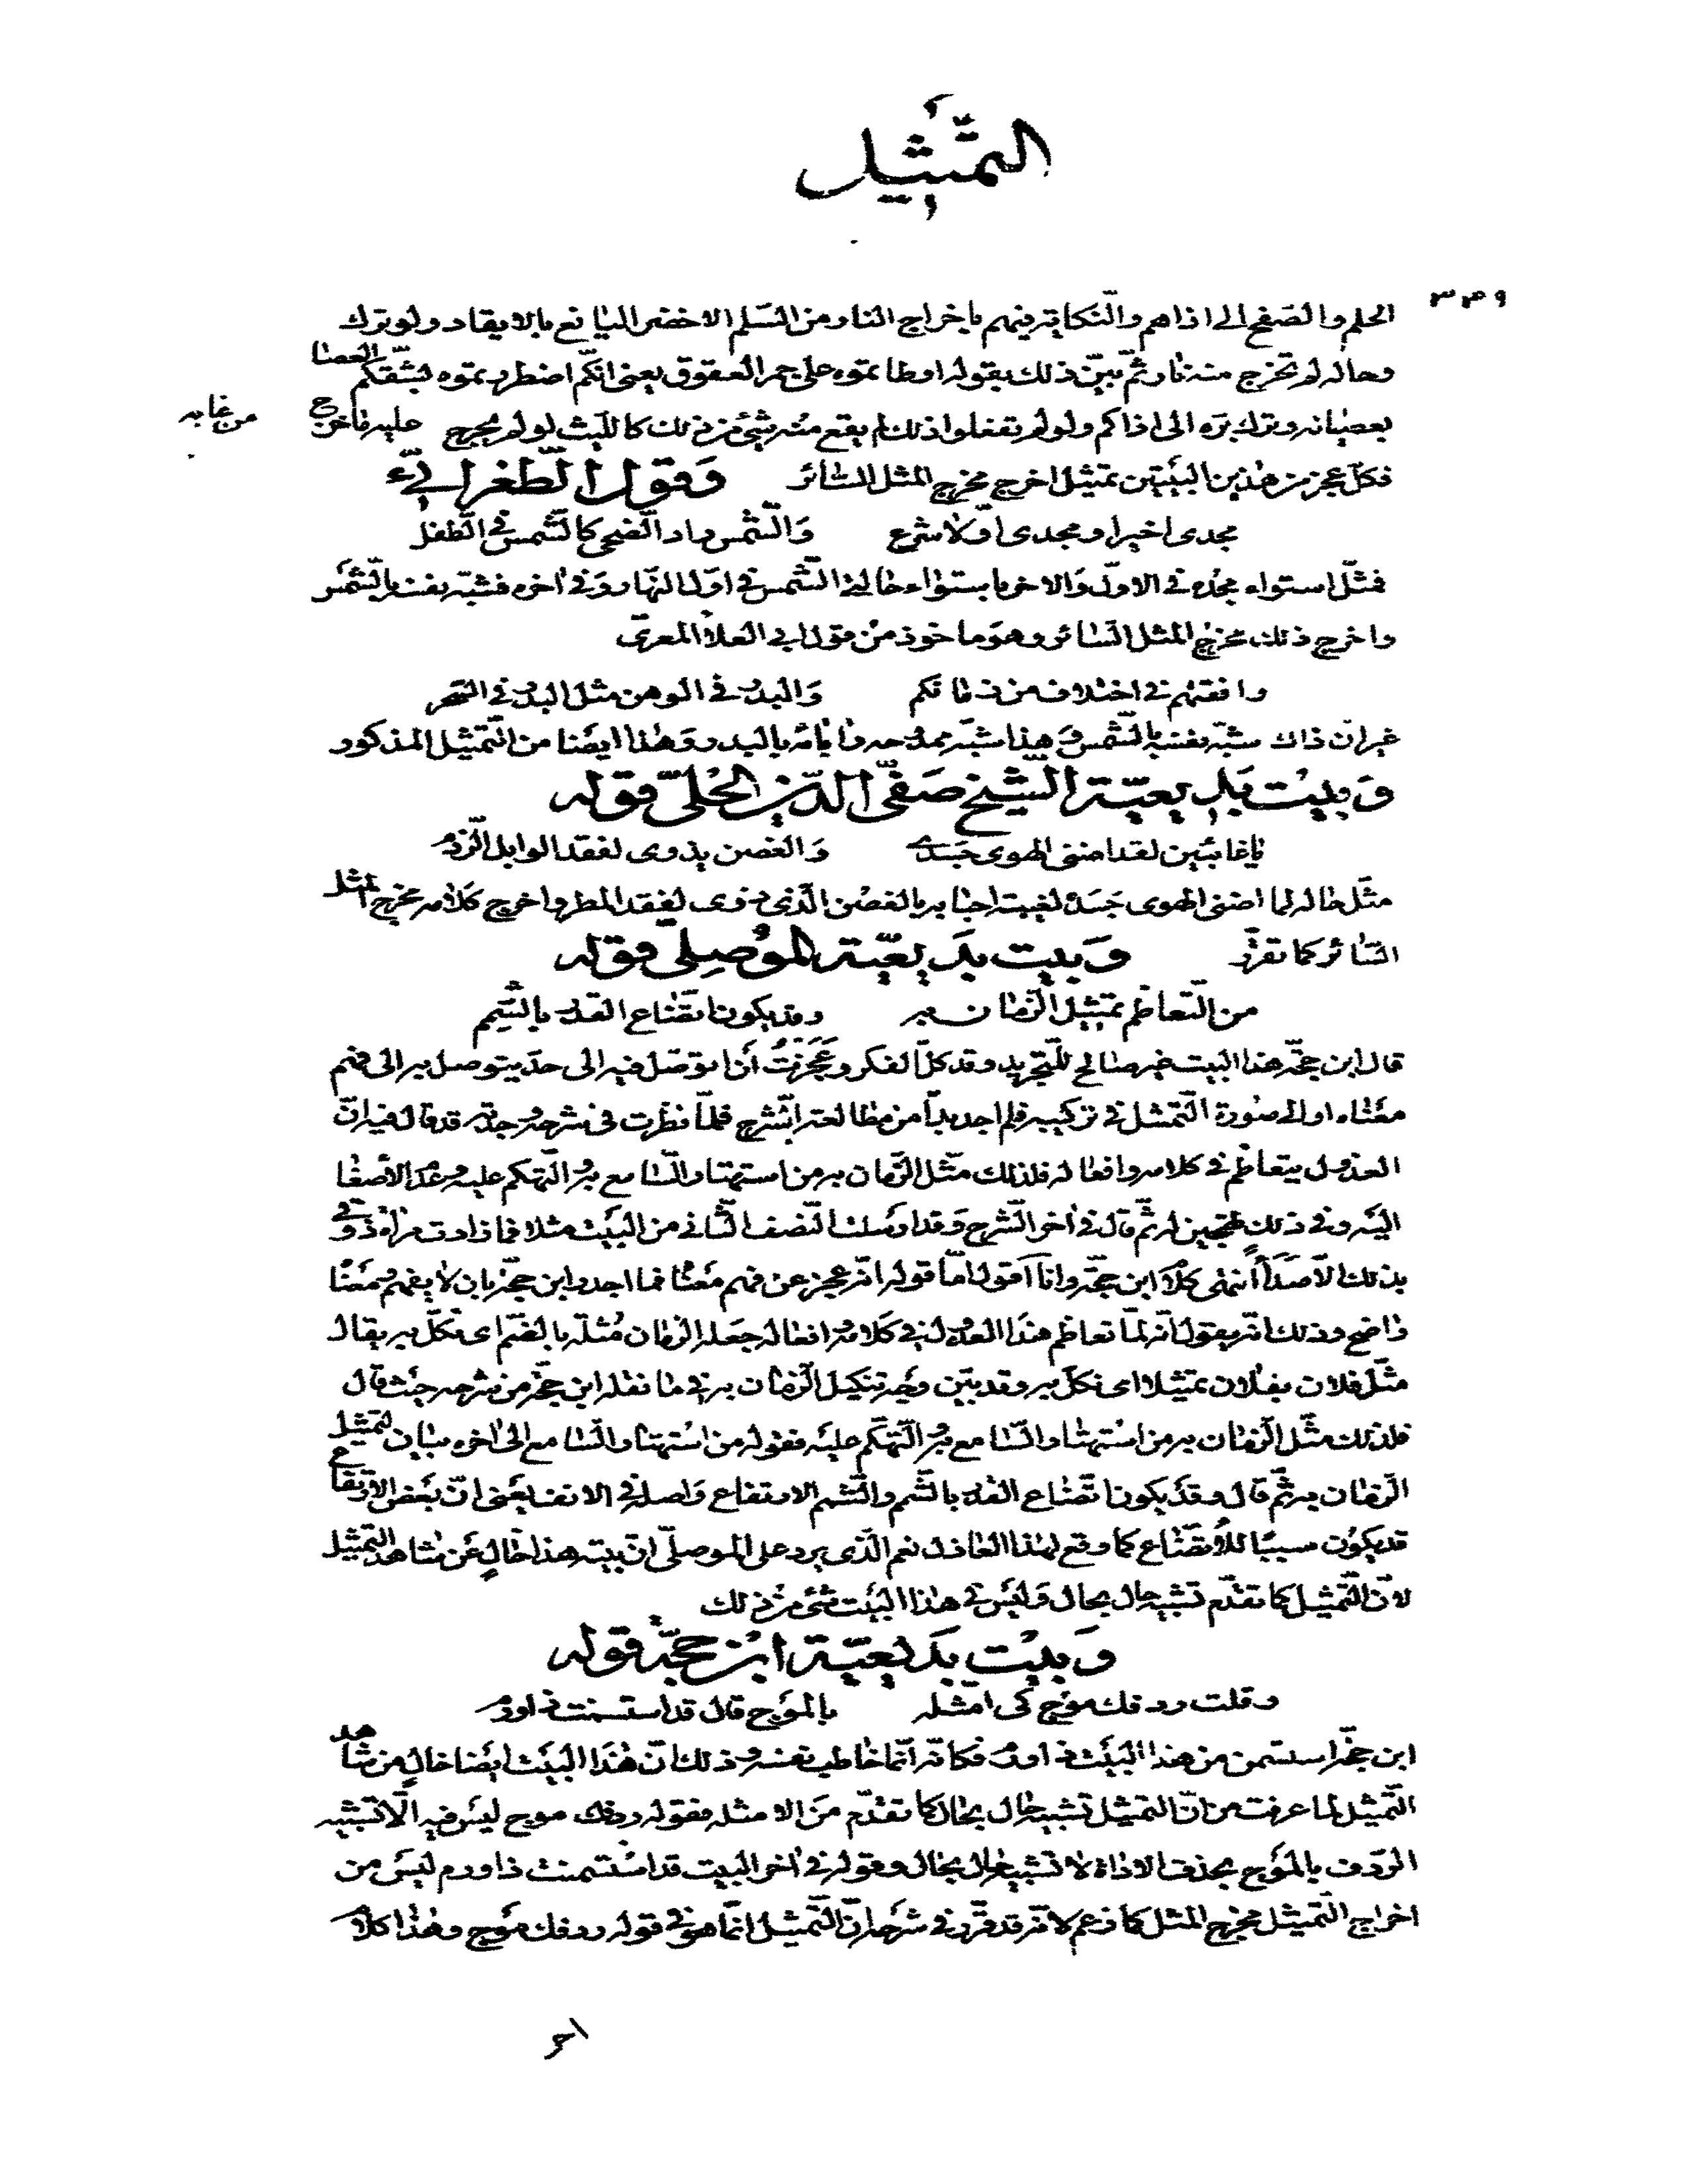 التمثيل
٣٤٩
الحلم والصفح الى اذاهم والنكاية فيهم باخراج النار من السلم الاخضر اليانع بالايقاد ولو ترك
وحاله لم تخرج منه نار ثم بين ذلك بقوله اوطأتموه على جمر العقوق يعني انكم اضطررتموه لشقكم العصا
بعصيانه وترك بره الى اذاكم ولو لم تفعلوا ذلك لم يقع منه شيء من ذلك كالليث لو لم يحرج عليه ما خرج
من غابه
فكل عجز من هذين البيتين تمثيل اخرج مخرج المثل السائر وقول الطغرائي
مجدي اخيرا ومجدي اولا شرع والشمس راد الضحى كالشمس في الطفل
فمثل استواء مجده في الاول والاخر باستواء حالتي الشمس في اول النهار وفي اخره فشبه نفسه بالشمس
واخرج ذلك مخرج المثل السائر وهو ماخوذ من قول ابي العلاء المعري
وافقتهم في اختلاف من زمانكم والبدر في الوهن مثل البدر في السحر
غير ان ذاك شبه نفسه بالشمس وهذا شبه ممدوحه واباءه بالبدر وهذا ايضا من التمثيل المذكور
وبيت بديعية الشيخ صفي الدين الحلي قوله
يا غائبين لقد اضنى الهوى جسدي والغصن يذوي لفقد الوابل الرذم
مثل حاله لما اضنى الهوى جسده لغيبة احبابه بالغصن الذي ذوى لفقد المطر واخرج كلامه مخرج المثل
السائر كما تقرر وبيت بديعية الموصلي قوله
من التعاظم تمثيل الزمان به وقد يكون اتضاع القدر بالشمم
قال ابن حجة هذا البيت غير صالح للتجريد وقد كل الفكر وعجزت ان اتوصل فيه الى حد يتوصل به الى فهم
معناه او الى صورة التمثيل في تركيبه فلم اجد بدا من مطالعة الشرح فلما نظرت في شرحه وجدته قد قال فيه ان
العذول يتعاظم في كلامه وافعاله فلذلك مثل الزمان به من استهتار السامع به والتهكم عليه وعدم الاصغاء
اليه وفي ذلك تهجين له ثم قال في اخر الشرح وقد ارسلت النصف الثاني من البيت مثلا فما زادت مرآة ذوقي
بذلك الا صدأ انتهى كلام ابن حجة وانا اقول اما قوله انه عجز عن فهم معناه فما اجدر ابن حجة بان لا يفهم معنا
واضح وذلك انه يقول انه لما تعاظم هذا العذول في كلامه وافعاله جعله الزمان مثلة بالضم اي نكل به يقال
مثل فلان بفلان تمثيلا اي نكل به وقد بين وجه تنكيل الزمان به في ما نقله ابن حجة من شرحه حيث قال
فلذلك مثل الزمان به من استهتار السامع به والتهكم عليه فقوله من استهتار السامع الى اخره بيان لتمثيل
الزمان به ثم قال وقد يكون اتضاع القدر بالشمم والشمم الارتفاع واصله في الانف يعني ان بعض الارتفاع
قد يكون سببا للاتضاع كما وقع لهذا العاذل نعم الذي يرد على الموصلي ان بيته هذا خال عن شاهد التمثيل
لان التمثيل كما تقدم تشبيه حال بحال وليس في هذا البيت شيء من ذلك
وبيت بديعية ابن حجة قوله
وقلت ردفك موج كي امثله بالموج قال قد استسمنت ذا ورم
ابن حجة استسمن من هذا البيت ذا ورم فكانه انما خاطب نفسه وذلك ان هذا البيت ايضا خال من شاهد
التمثيل لما عرفت من ان التمثيل تشبيه حال بحال كما تقدم من الامثلة فقوله ردفك موج ليس فيه الا تشبيه
الردف بالموج بحذف الاداة لا تشبيه حال بحال وقوله في اخر البيت قد استسمنت ذا ورم ليس من
اخراج التمثيل مخرج المثل كما زعم لانه قد قرر في شرحه ان التمثيل انما هو في قوله ردفك موج وهذا كلام
اخر